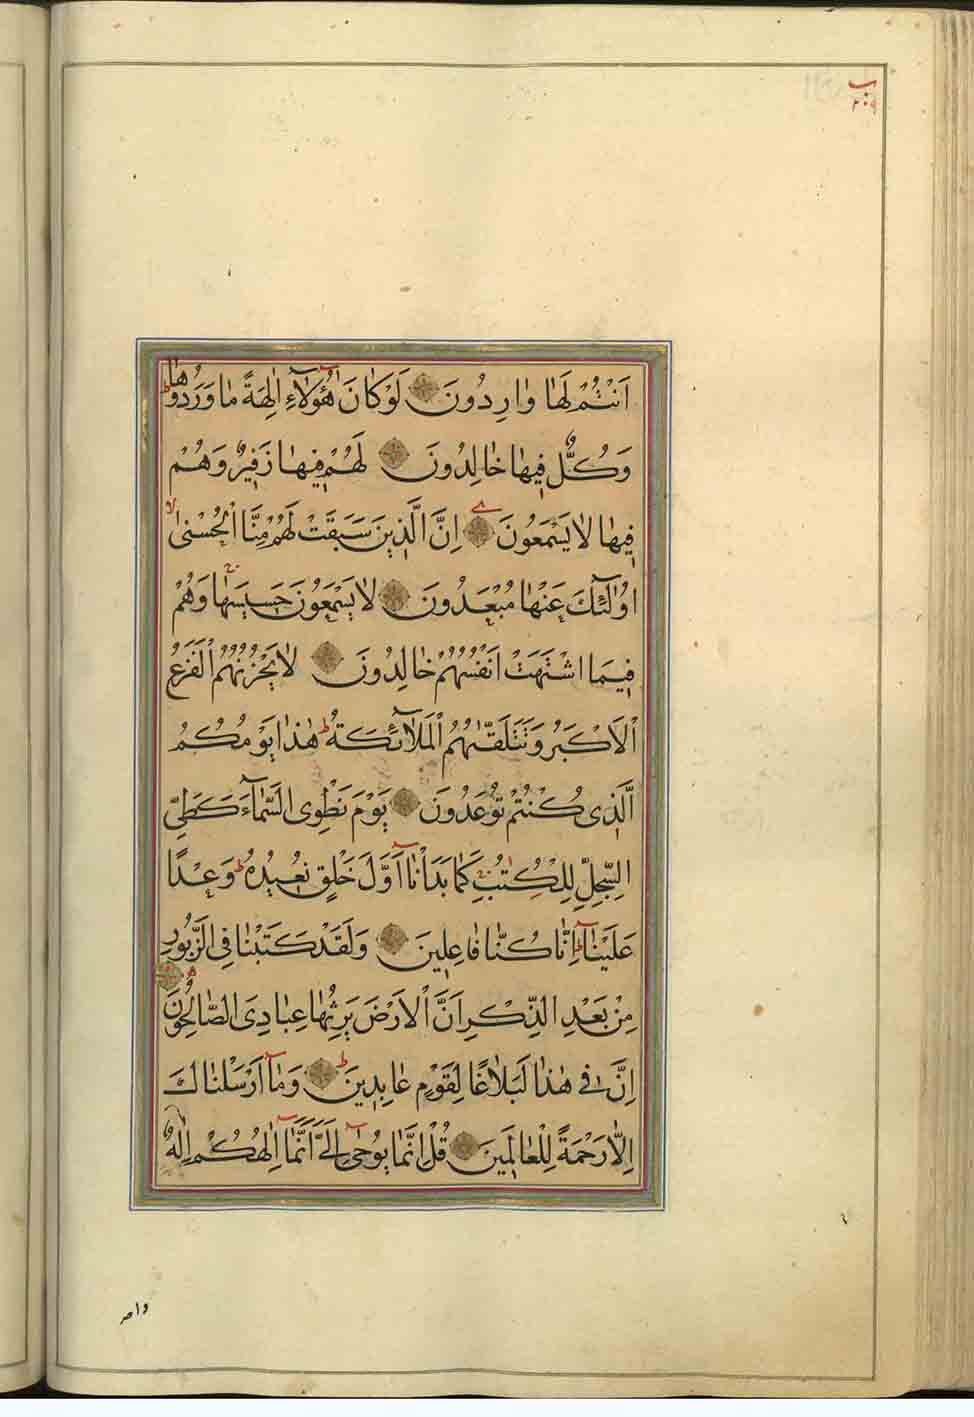 ب
٢٠٩
اَنْتُمْ لَهَا وَارِدُونَ لَوْ كَانَ هٰٓؤُلَآءِ اٰلِهَةً مَا وَرَدُوهَا
وَكُلٌّ فِيهَا خَالِدُونَ لَهُمْ فِيهَا زَفِيرٌ وَهُمْ
فِيهَا لَا يَسْمَعُونَ اِنَّ الَّذِينَ سَبَقَتْ لَهُمْ مِنَّا الْحُسْنٰى
اُولٰٓئِكَ عَنْهَا مُبْعَدُونَ لَا يَسْمَعُونَ حَسِيسَهَا وَهُمْ
فِيمَا اشْتَهَتْ اَنْفُسُهُمْ خَالِدُونَ لَا يَحْزُنُهُمُ الْفَزَعُ
الْاَكْبَرُ وَتَتَلَقّٰيهُمُ الْمَلَآئِكَةُ هٰذَا يَوْمُكُمُ
الَّذِى كُنْتُمْ تُوعَدُونَ يَوْمَ نَطْوِى السَّمَآءَ كَطَىِّ
السِّجِلِّ لِلْكُتُبِ كَمَا بَدَاْنَآ اَوَّلَ خَلْقٍ نُعِيدُهُ وَعْدًا
عَلَيْنَآ اِنَّا كُنَّا فَاعِلِينَ وَلَقَدْ كَتَبْنَا فِى الزَّبُورِ
مِنْ بَعْدِ الذِّكْرِ اَنَّ الْاَرْضَ يَرِثُهَا عِبَادِىَ الصَّالِحُونَ
اِنَّ فِى هٰذَا لَبَلَاغًا لِقَوْمٍ عَابِدِينَ وَمَآ اَرْسَلْنَاكَ
اِلَّا رَحْمَةً لِلْعَالَمِينَ قُلْ اِنَّمَا يُوحٰىٓ اِلَىَّ اَنَّمَآ اِلٰهُكُمْ اِلٰهٌ
واحد